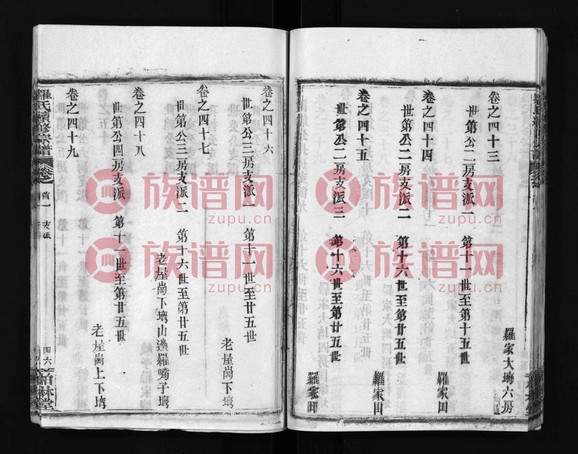 卷之四十三
世第公二房支派一 第十一世至第十五世
羅家大塆六房
卷之四十四
世第公二房支派二 第十六世至第廿五世
羅家田
卷之四十五
世第公二房支派三 第十六世至第廿五世
羅家田
卷之四十六
世第公三房支派一 第十一世至第廿五世
老屋崗下塆
卷之四十七
世第公三房支派二 第十六世至第廿五世
老屋崗下塆山邊羅 子塆
卷之四十八
世第公四房支派 第十一世至第廿五世
老屋崗上下塆
卷之四十九
羅氏續修宗譜 卷 首一 支派 四六 柏林堂
族谱网
zupu.cn
族谱网
zupu.cn
族谱网
zupu.cn
族谱网
zupu.cn